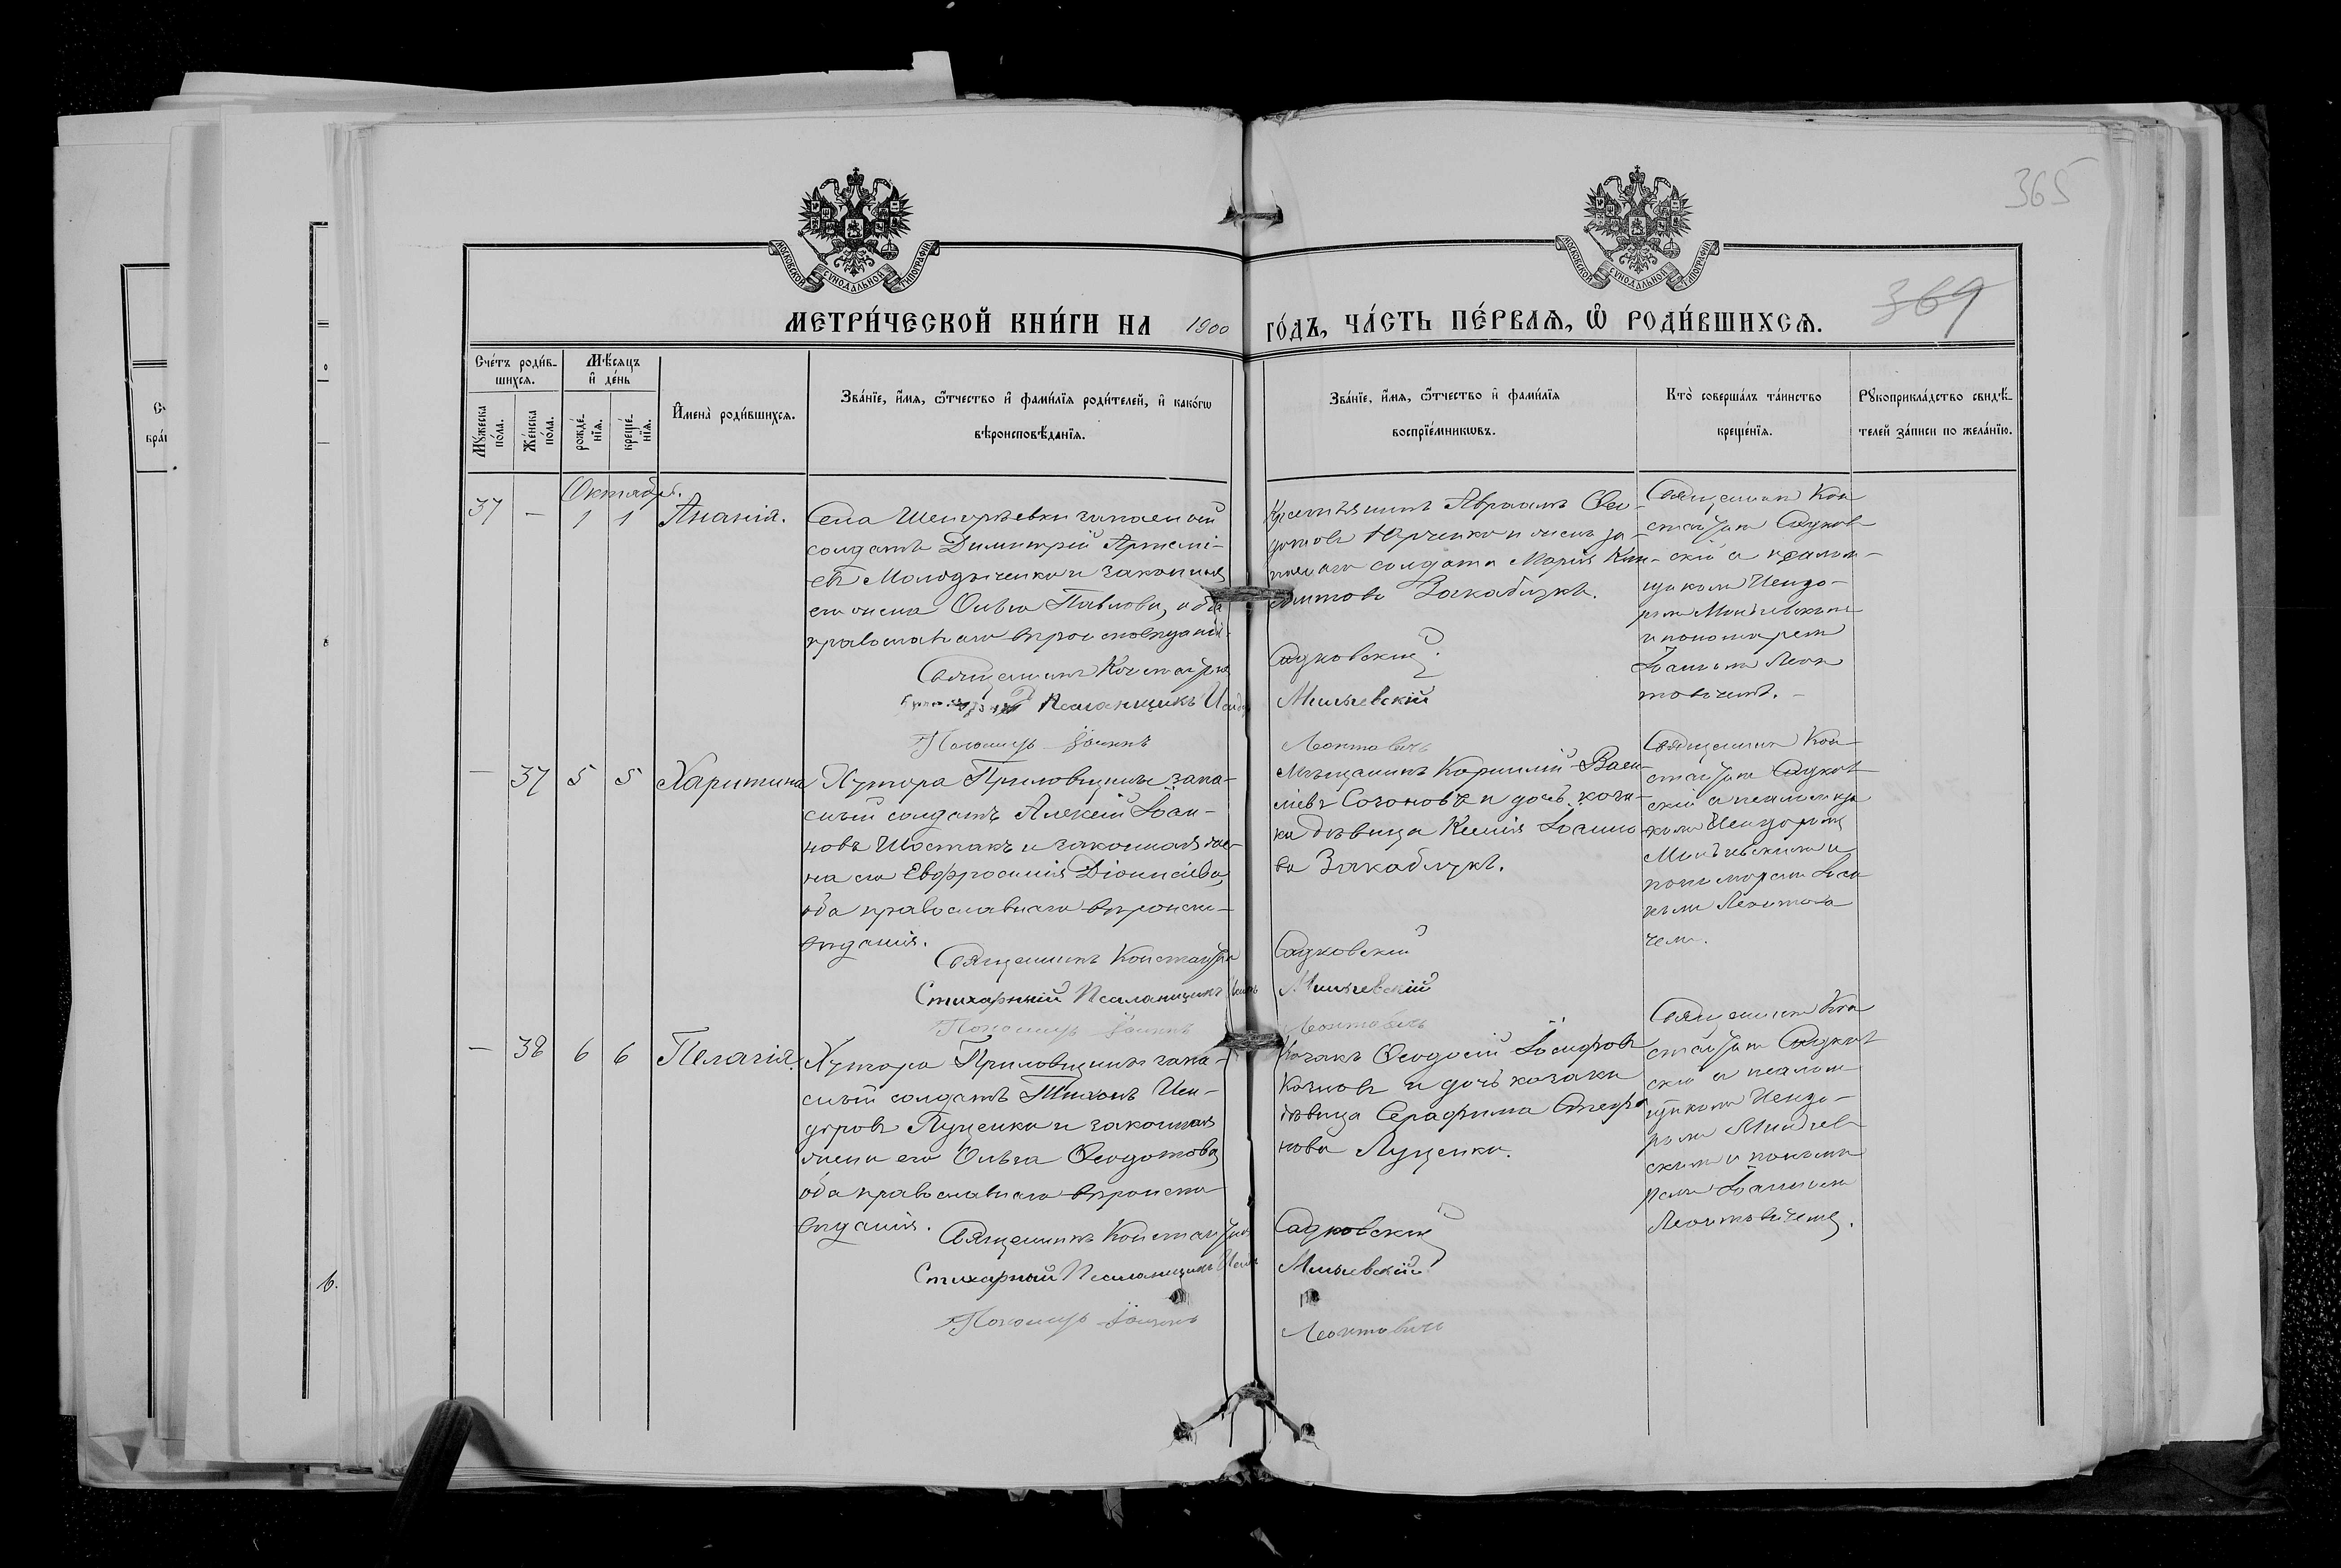 365
369
МОСКОВСКОЙ СѴНОДАЛЬНОЙ ТИПОГРАФІИ
МОСКОВСКОЙ СѴНОДАЛЬНОЙ ТИПОГРАФІИ
МЕТРИ́ЧЕСКОЙ КНИ́ГИ НА 1900 ГО́ДЪ, ЧА́СТЬ ПЕ́РВАѦ, Ѽ РОДИ́ВШИХСѦ.
Сче́тъ роди́в-
шихсѧ.
Мꙋ́жеска по́ла.
Же́нска по́ла.
Мѣ́сѧцъ
и҆ де́нь
рожде́-
нїѧ.
креще́-
нїѧ.
И҆мена̀ роди́вшихсѧ.
Зва́нїе, и҆́мѧ, ѻ҆́тчество и҆ фами́лїѧ роди́телей, и҆ како́гѡ
вѣроисповѣ́данїѧ.
Зва́нїе, и҆́мѧ, ѻ҆́тчество и҆ фами́лїѧ
воспрїе́мникѡвъ.
Кто̀ соверша́лъ та́инство
креще́нїѧ.
Рꙋкоприкла́дство свидѣ́-
телей за́писи по жела́нїю.
Октября.
37 — 1 1 Ананія.
Села запасный
солдатъ Димитрій Арсені-
евъ и законная
его жена Ольга Павлова, оба
православнаго вѣроисповѣданія.
Священникъ Константинъ
Псаломщикъ
Пономарь Іоаннъ
Авраамъ Ѳео-
дотовъ Юрченко и жена за-
паснаго солдата Марія
Закаблукъ.
Садковскій
Мильчевскій
Леонтовичъ
Священник Кон
стантин Садков
скій с псалом-
щиком Исидо-
ром Мильчевским
и пономарем
Іоанном Леон
товичем. —
— 37 5 5 Харитина
Хутора Приловщины запа-
сный солдатъ Алексій Іоан-
новъ Шостакъ и законная же-
на его Евфросинія Діонисіева,
оба православнаго вѣроиспо-
вѣданія.
Священникъ Константинъ
Стихарный Псаломщикъ
Пономарь Іоаннъ
Мѣщанинъ Корнилій Васи-
ліевъ и дочь коза-
ка дѣвица Ксенія Іоанно
ва Закаблукъ.
Садковскій
Мильчевскій
Леонтовичъ
Священник Кон
стантин Садков
скій с псаломщи
ком Исидором
Мильчевским и
пономарем Іоан
ном Леонтови
чем.
— 38 6 6 Пелагія.
Хутора Приловщины запа-
сный солдатъ Тихонъ Иси-
доровъ Луценко и законная
жена его Ольга Ѳеодотова,
оба православнаго вѣроиспо-
вѣданія.
Священникъ Константинъ
Стихарный Псаломщикъ
Пономарь Іоаннъ
Козакъ Ѳеодосій Іосифовъ
и дочь козака
дѣвица Серафима Стефа
нова Луценко.
Садковскій
Мильчевскій
Леонтовичъ
Священник Кон
стантин Садков
скій с псалом
щиком Исидо-
ром Мильчев
ским и понома
рем Іоанном
Леонтовичем.